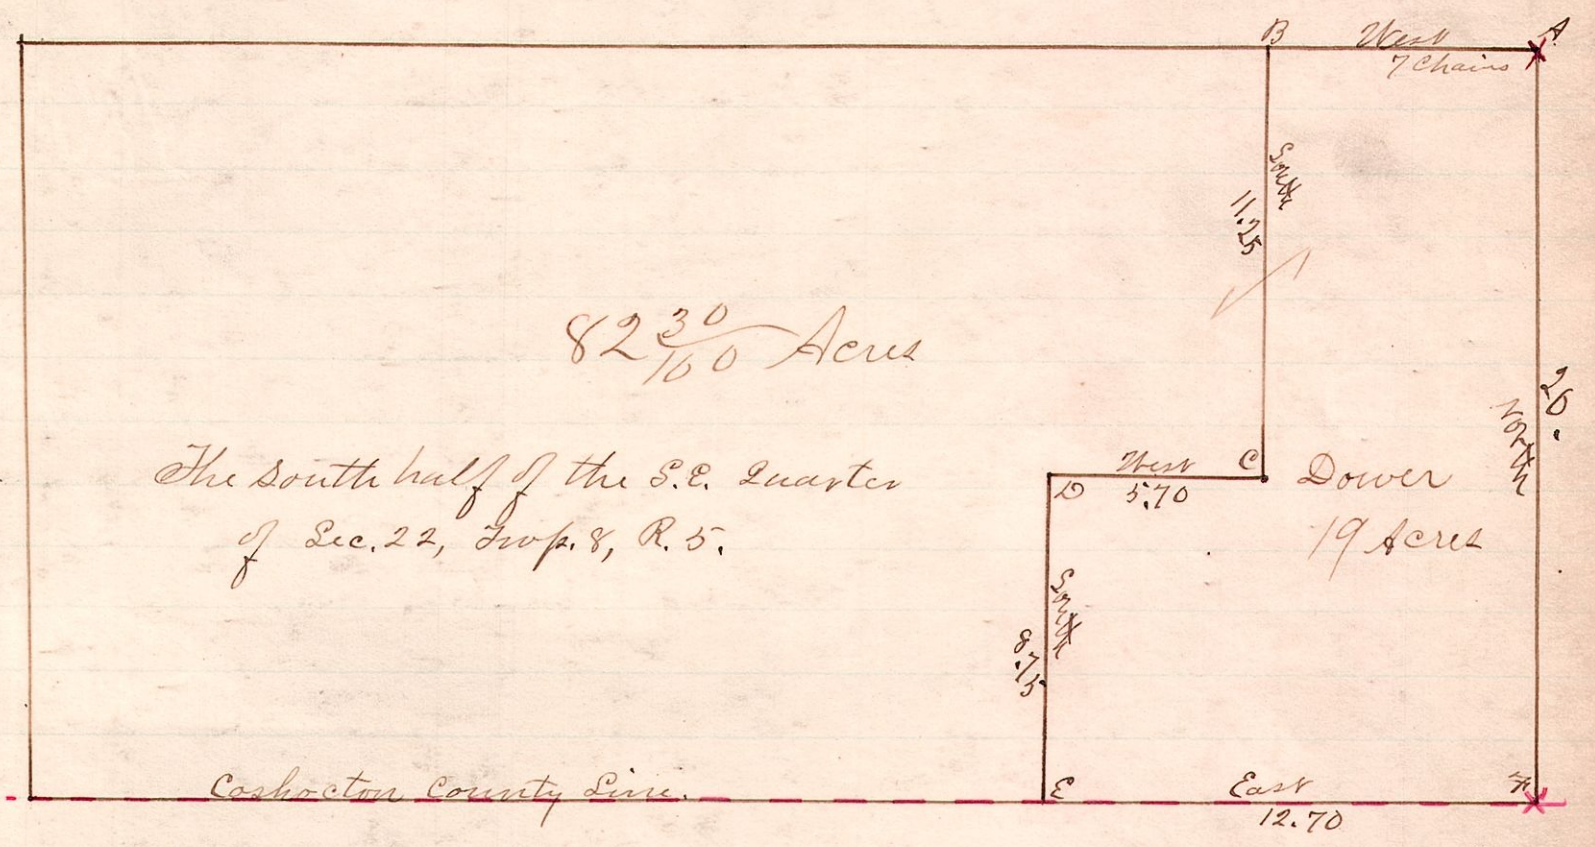 B West A
7 Chains
South
11.25
82 30/100 Acres
20.
North
The south half of the S.E. Quarter
of Sec. 22, Twp. 8, R. 5.
West C
D 5.70
Dower
19 Acres
South
8.75
Coshocton County Line.
E East F
12.70